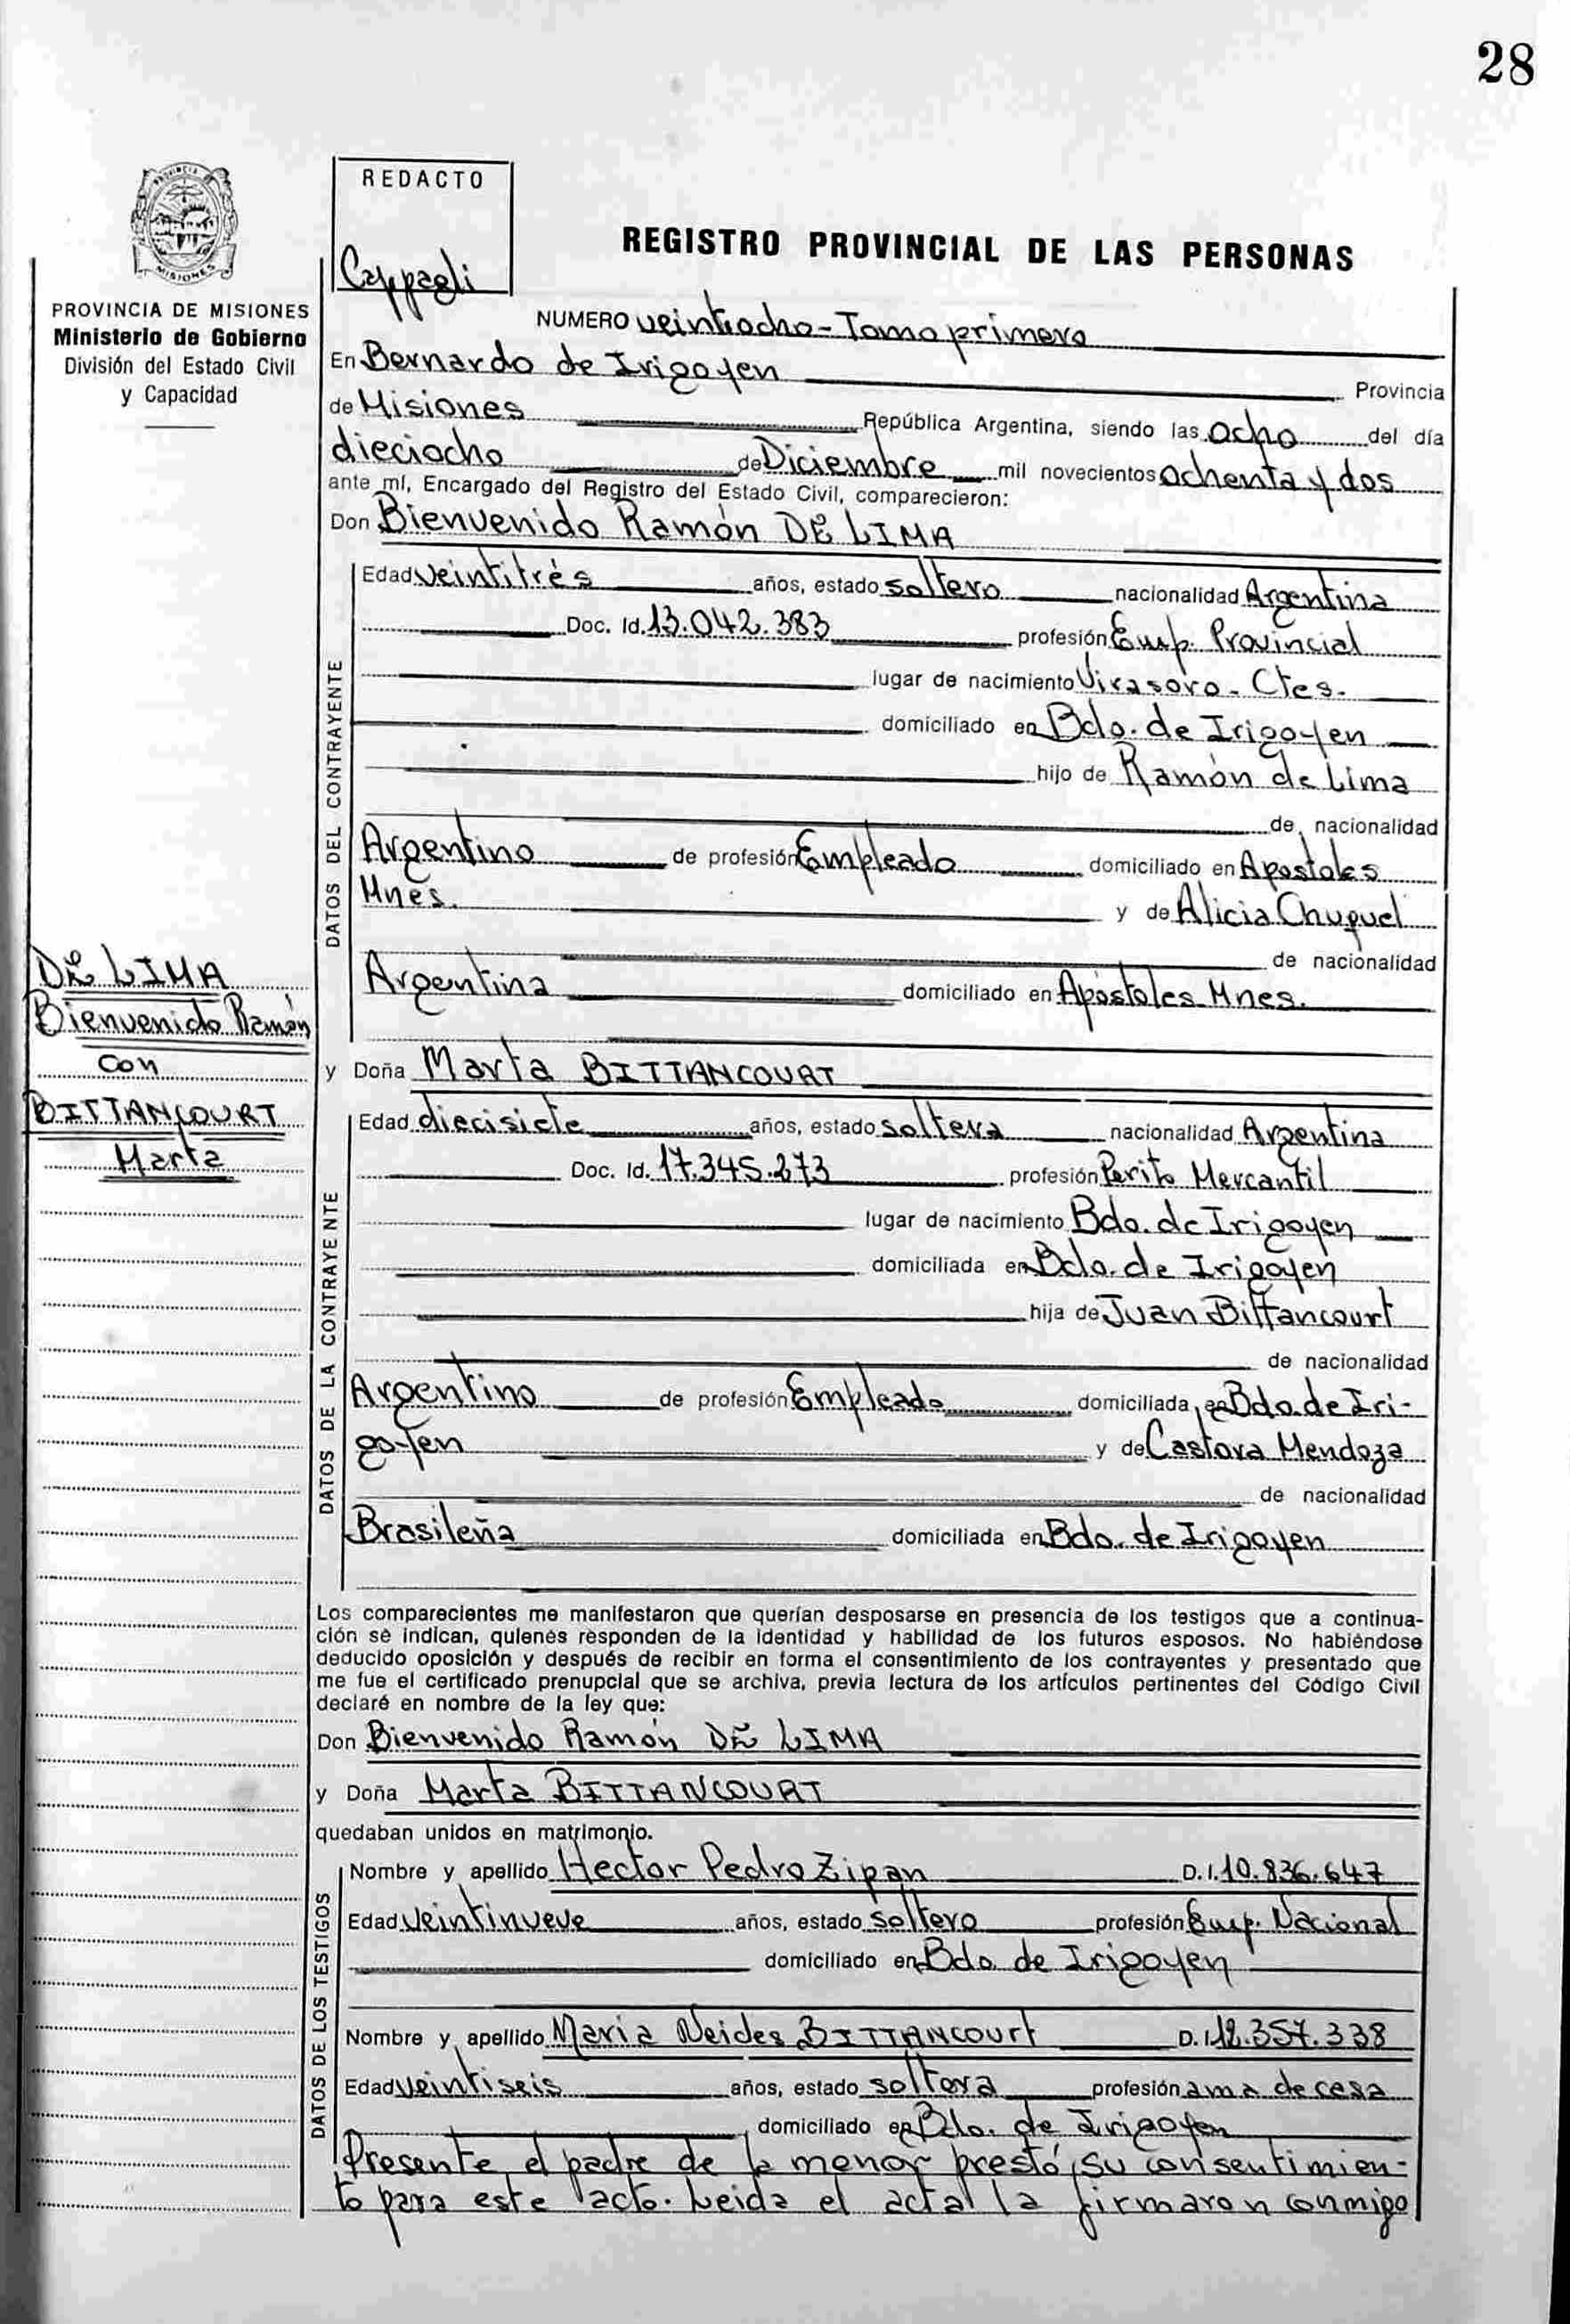 28
REDACTO
Cappagli
REGISTRO PROVINCIAL DE LAS PERSONAS
PROVINCIA DE MISIONES
Ministerio de Gobierno
División del Estado Civil
y Capacidad
NUMERO veintiocho - Tomo primero
En Bernardo de Irigoyen Provincia
de Misiones República Argentina, siendo las ocho del día
dieciocho de Diciembre mil novecientos ochenta y dos
ante mí, Encargado del Registro del Estado Civil, comparecieron:
Don Bienvenido Ramón DE LIMA
DATOS DEL CONTRAYENTE
Edad veintitrés años, estado soltero nacionalidad Argentina
Doc. Id. 13.042.383 profesión Emp. Provincial
lugar de nacimiento Virasoro - Ctes.
domiciliado en Bdo. de Irigoyen
hijo de Ramón de Lima
de nacionalidad
Argentino de profesión Empleado domiciliado en Apostoles
Mnes. y de Alicia Chuquel
de nacionalidad
Argentina domiciliado en Apóstoles Mnes.
DE LIMA
Bienvenido Ramón
con
BITTANCOURT
Marta
y Doña Marta BITTANCOURT
DATOS DE LA CONTRAYENTE
Edad diecisiete años, estado soltera nacionalidad Argentina
Doc. Id. 17.345.273 profesión Perito Mercantil
lugar de nacimiento Bdo. de Irigoyen
domiciliada en Bdo. de Irigoyen
hija de Juan Bittancourt
de nacionalidad
Argentino de profesión Empleado domiciliada en Bdo. de Iri-
goyen y de Castora Mendoza
de nacionalidad
Brasileña domiciliada en Bdo. de Irigoyen
Los comparecientes me manifestaron que querían desposarse en presencia de los testigos que a continua-
ción se indican, quienes responden de la identidad y habilidad de los futuros esposos. No habiéndose
deducido oposición y después de recibir en forma el consentimiento de los contrayentes y presentado que
me fue el certificado prenupcial que se archiva, previa lectura de los artículos pertinentes del Código Civil
declaré en nombre de la ley que:
Don Bienvenido Ramón DE LIMA
y Doña Marta BITTANCOURT
quedaban unidos en matrimonio.
DATOS DE LOS TESTIGOS
Nombre y apellido Hector Pedro Zipan D.I. 10.836.647
Edad veintinueve años, estado soltero profesión Emp. Nacional
domiciliado en Bdo. de Irigoyen
Nombre y apellido Maria Neides BITTANCOURT D.I. 12.357.338
Edad veintiseis años, estado soltera profesión ama de casa
domiciliado en Bdo. de Irigoyen
Presente el padre de la menor prestó su consentimien-
to para este acto. Leida el acta la firmaron conmigo